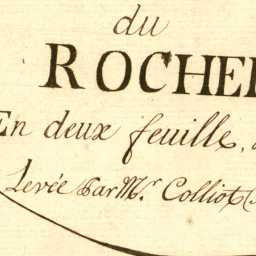 du
ROCHE
En deux feuille,
Levée Par Mr. Colliot